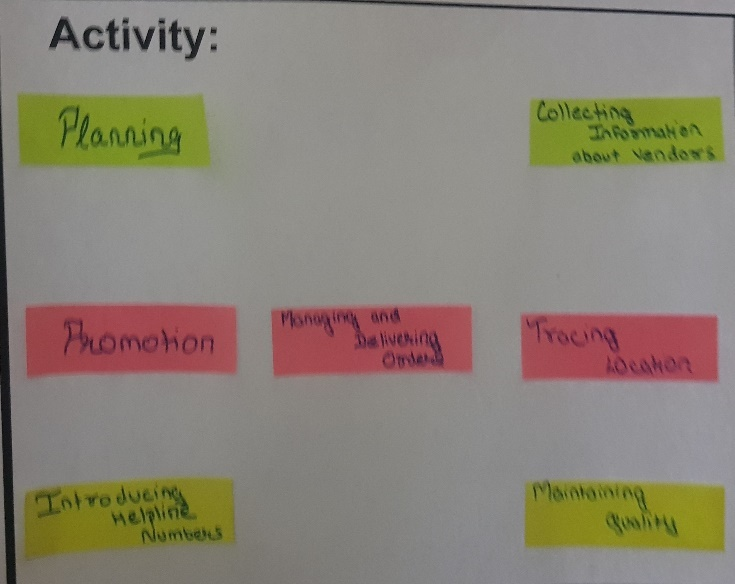 Activity:
Planning
Collecting
Information
about vendors
Promotion
Managing and
Delivering
Orders
Tracing
Location
Introducing
Helpline
Numbers
Maintaining
Quality